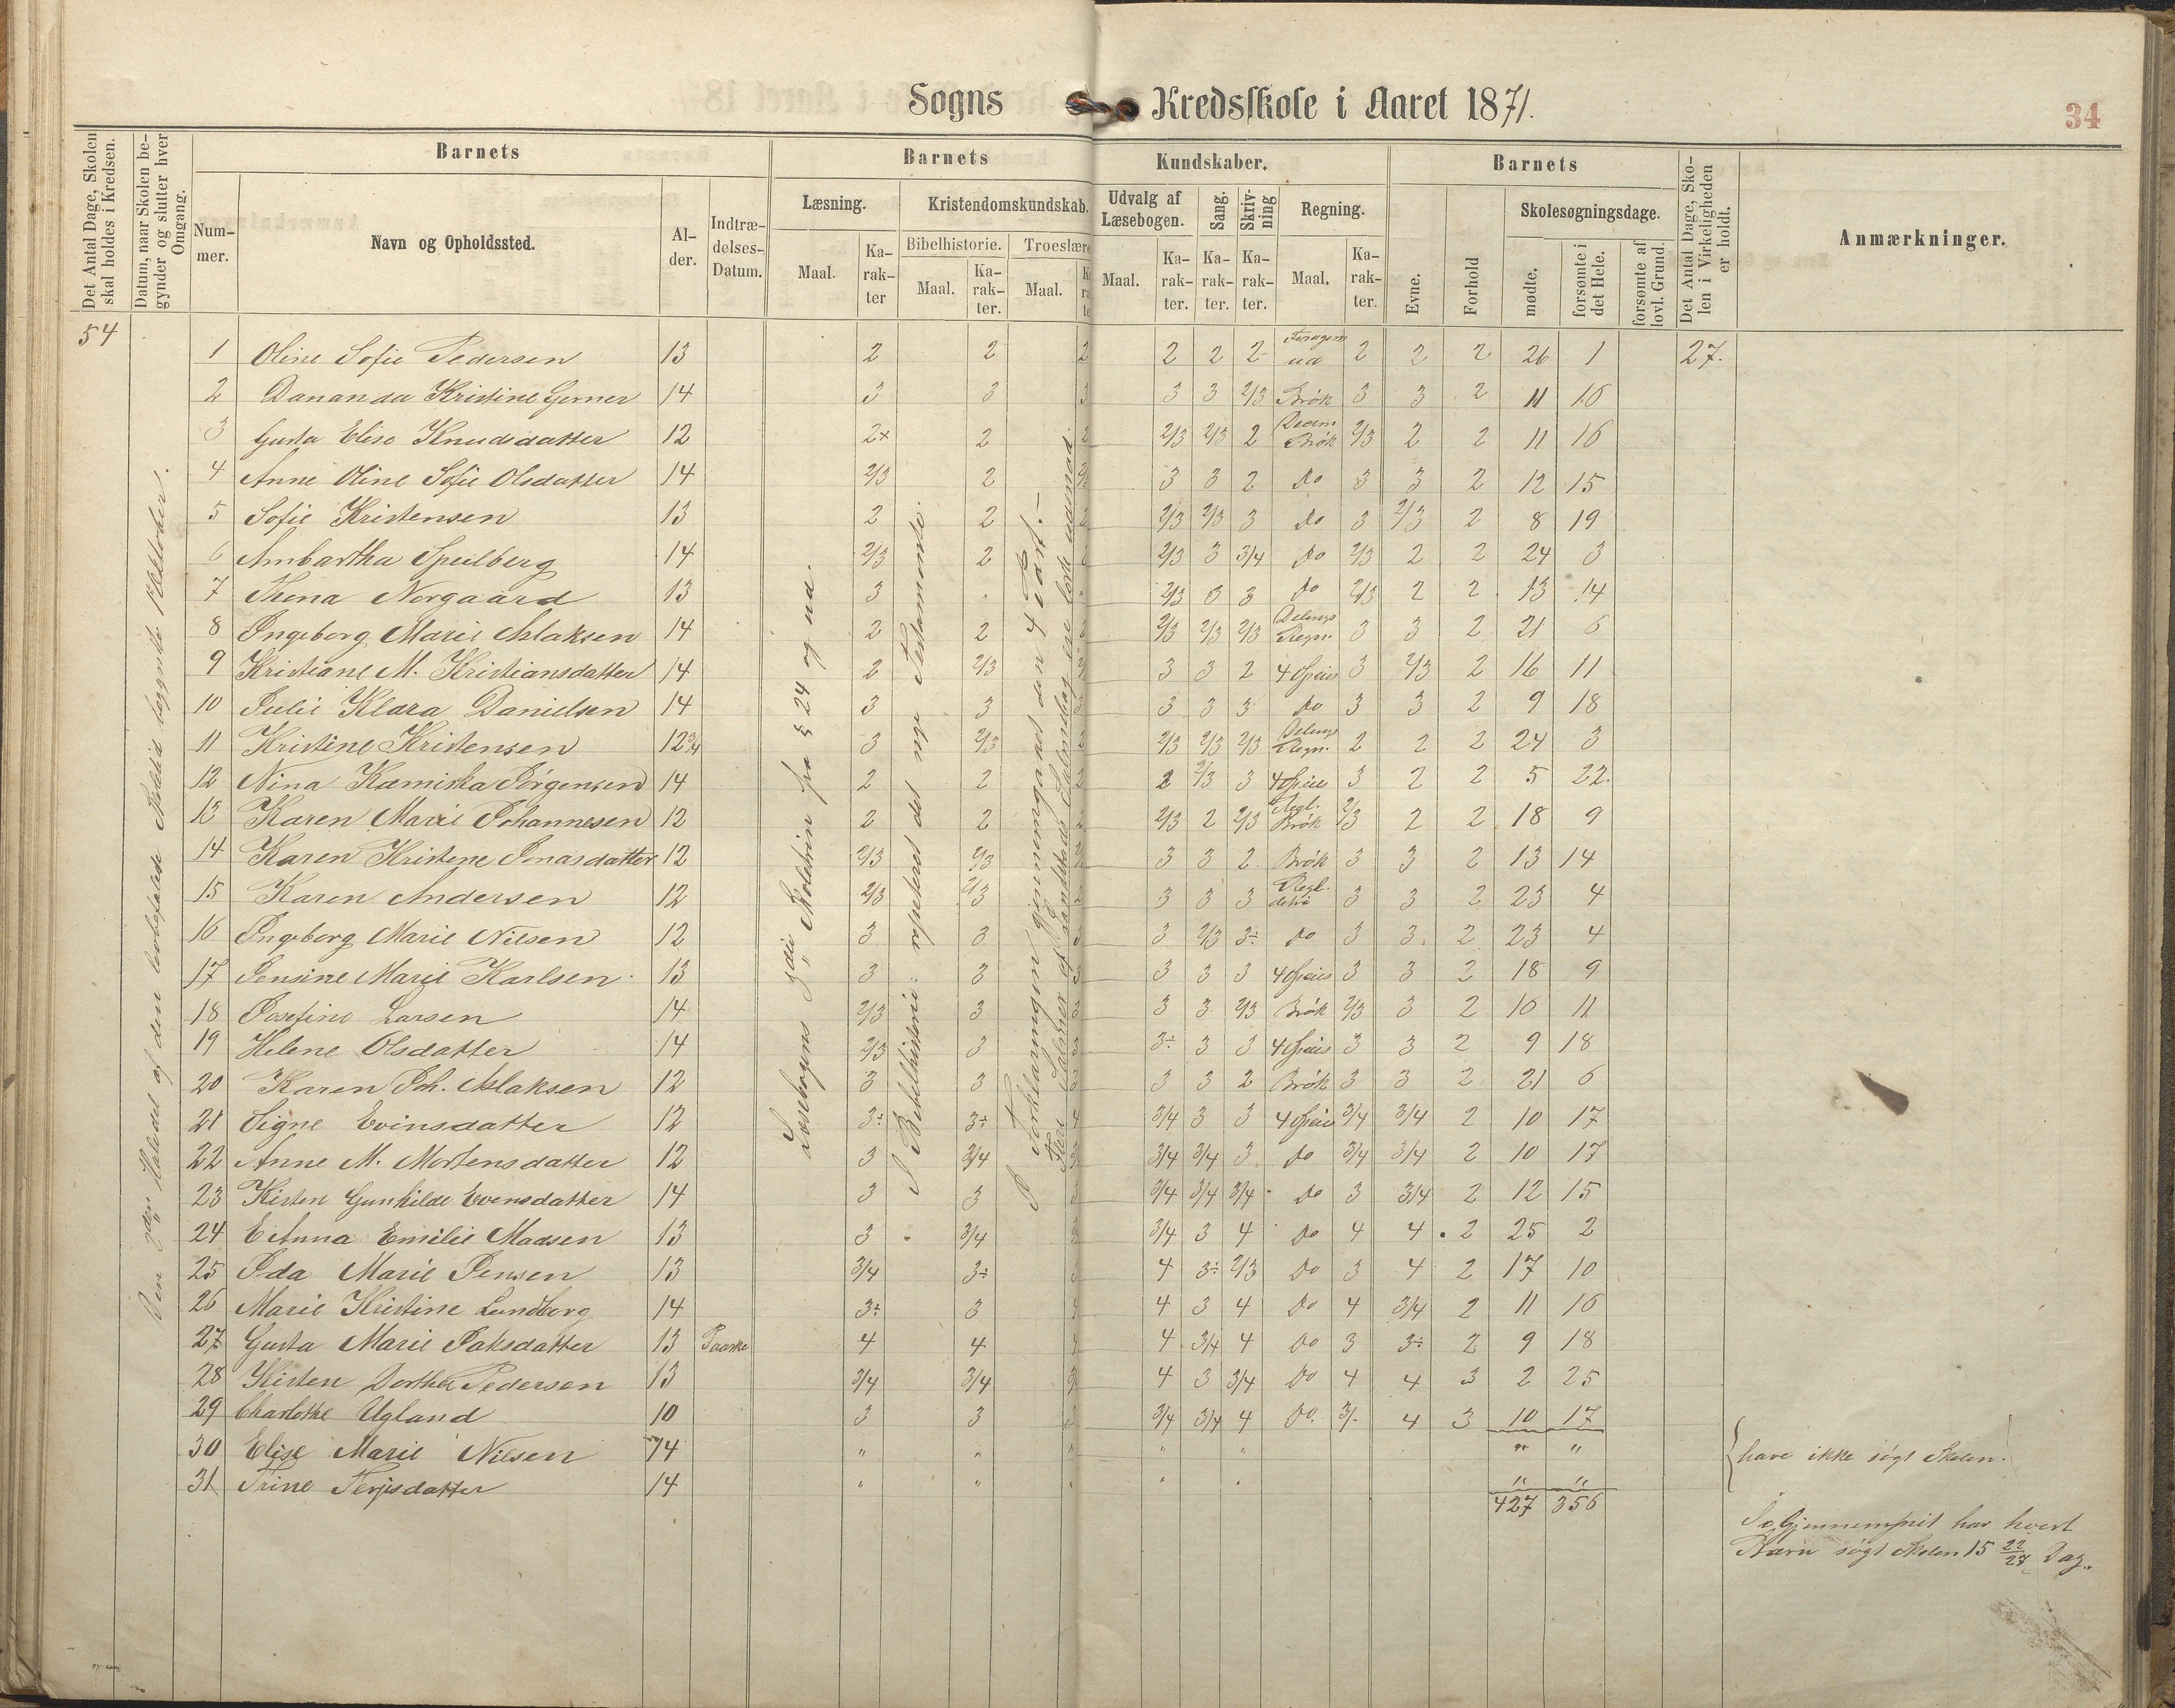 Sogns Kredsskole i Aaret 1871.
34
Det Antal Dage, Skolen skal holdes i Kredsen.
Datum, naar Skolen begynder og slutter hver Omgang.
Barnets
Num-mer.
Navn og Opholdssted.
Al-der.
Indtræ-delses-Datum.
Barnets Kundskaber.
Læsning.
Maal.
Ka-rak-ter
Kristendomskundskab.
Bibelhistorie.
Maal.
Ka-rak-ter.
Troeslære
Maal.
Udvalg af Læsebogen.
Maal.
Ka-rak-ter.
Sang.
Ka-rak-ter.
Skriv-ning
Ka-rak-ter.
Regning.
Maal.
Ka-rak-ter.
Barnets
Evne.
Forhold
Skolesøgningsdage.
mødte.
forsømte i det Hele.
forsømte af lovl. Grund.
Det Antal Dage, Sko-len i Virkeligheden er holdt.
Anmærkninger.
54
1 Oline Sofie Pedersen 13 2 2 2 2 2 2 ud 2 2 2 26 1 27.
2 Dananda Kristine Gerner 14 3 3 3 3 3 2/3 Brök 3 3 2 11 16
3 Gusta Elise Knudsdatter 12 2+ 2 2 2/3 2/3 2 Decem. Brök 2/3 2 2 11 16
4 Anne Oline Sofie Olsdatter 14 2/3 2 3 3 2 Do 3 3 2 12 15
5 Sofie Kristensen 13 2 2 2 2/3 2/3 3 Do 3 2/3 2 8 19
6 Ambartha Speilberg 14 2/3 2 2/3 3 3/4 Do 2/3 2 2 24 3
7 Thona Norgaard 13 3 " " 2/3 3 3 Do 2/3 2 2 13 14
8 Ingeborg Marie Aslaksen 14 2 2 2/3 2/3 2/3 Delings Regn. 3 3 2 21 6
9 Kristiane M. Kristiansdatter 14 2 2/3 3 3 2 4 Species 3 2/3 2 16 11
10 Julie Klara Danielsen 14 3 3 3 3 3 3 Do 3 3 2 9 18
11 Kristine Kristensen 12 3/4 3 2/3 2 2/3 2/3 2/3 Delings Regn. 2 2 2 24 3
12 Nina Kamiska Jörgensen 14 2 2 2 2 2/3 3 4 Species 3 2 2 5 22.
13 Karen Marie Johannesen 12 2 2 2/3 2 2/3 Regl. Brök 2/3 2 2 18 9
14 Karen Kristine Jonasdatter 12 2/3 2/3 3 3 2 Brök 3 3 2 13 14
15 Karen Andersen 12 2/3 2/3 3 3 3 Regl. detri 3 3 2 23 4
16 Ingeborg Marie Nilsen 12 3 3 3 3 2/3 3÷ Do 3 3 2 23 4
17 Jensine Marie Karlsen 13 3 3 3 3 3 3 4 Species 3 3 2 18 9
18 Josefine Larsen 14 2/3 3 3 3 3 2/3 Brök 2/3 3 2 16 11
19 Helene Olsdatter 14 2/3 3 3÷ 3 3 4 Species 3 3 2 9 18
20 Karen Joh. Aslaksen 12 3 3 3 3 2 Brök 3 3 2 21 6
21 Signe Evinsdatter 12 3÷ 3÷ 4 3/4 3 3 4 Species 3/4 3/4 2 10 17
22 Anne M. Mortensdatter 12 3 3/4 3/4 3/4 3 Do 3/4 3/4 2 10 17
23 Kisten Gunhilde Evensdatter 14 3 3 3 3/4 3/4 3/4 Do 3 3/4 2 12 15
24 E Anna Emilie Madsen 13 3 3/4 3/4 3 4 Do 4 4 2 25 2
25 Ida Marie Jensen 13 3/4 3÷ 3 4 3÷ 2/3 Do 3 4 2 17 10
26 Marie Kristine Lundberg 14 3÷ 3 4 4 3 4 Do 4 3/4 2 11 16
27 Gusta Marie Isaksdatter 13 Paaske 4 4 4 4 3/4 4 Do 3 3÷ 2 9 18
28 Kisten Dorthea Pedersen 13 3/4 3/4 4 3 3/4 Do 4 4 3 2 25
29 Charlothe Ugland 10 3 3 3 3/4 3/4 4 Do. 3/. 4 3 10 17
30 Elise Marie Nilsen 14 " " " " " " "
31 Trine Terjesdatter 14 " " " " " " "
427 356
Den 2den Halvdel af den lovbefalede Skoletid begyndte 1 Oktober.
Læsebogens 3die Skoletrin fra § 24 og ud.
I Bibelhistorie: repeteret det nye Testamente.
I Forklaringen gjennemgaaet den 4 Part.—
Flere Salmer af Landstads Salmebog ere lærte udenad.
{ have ikke søgt Skolen.
I Gjennemsnit har hvert
Barn søgt Skolen 15 22/27 Dag.